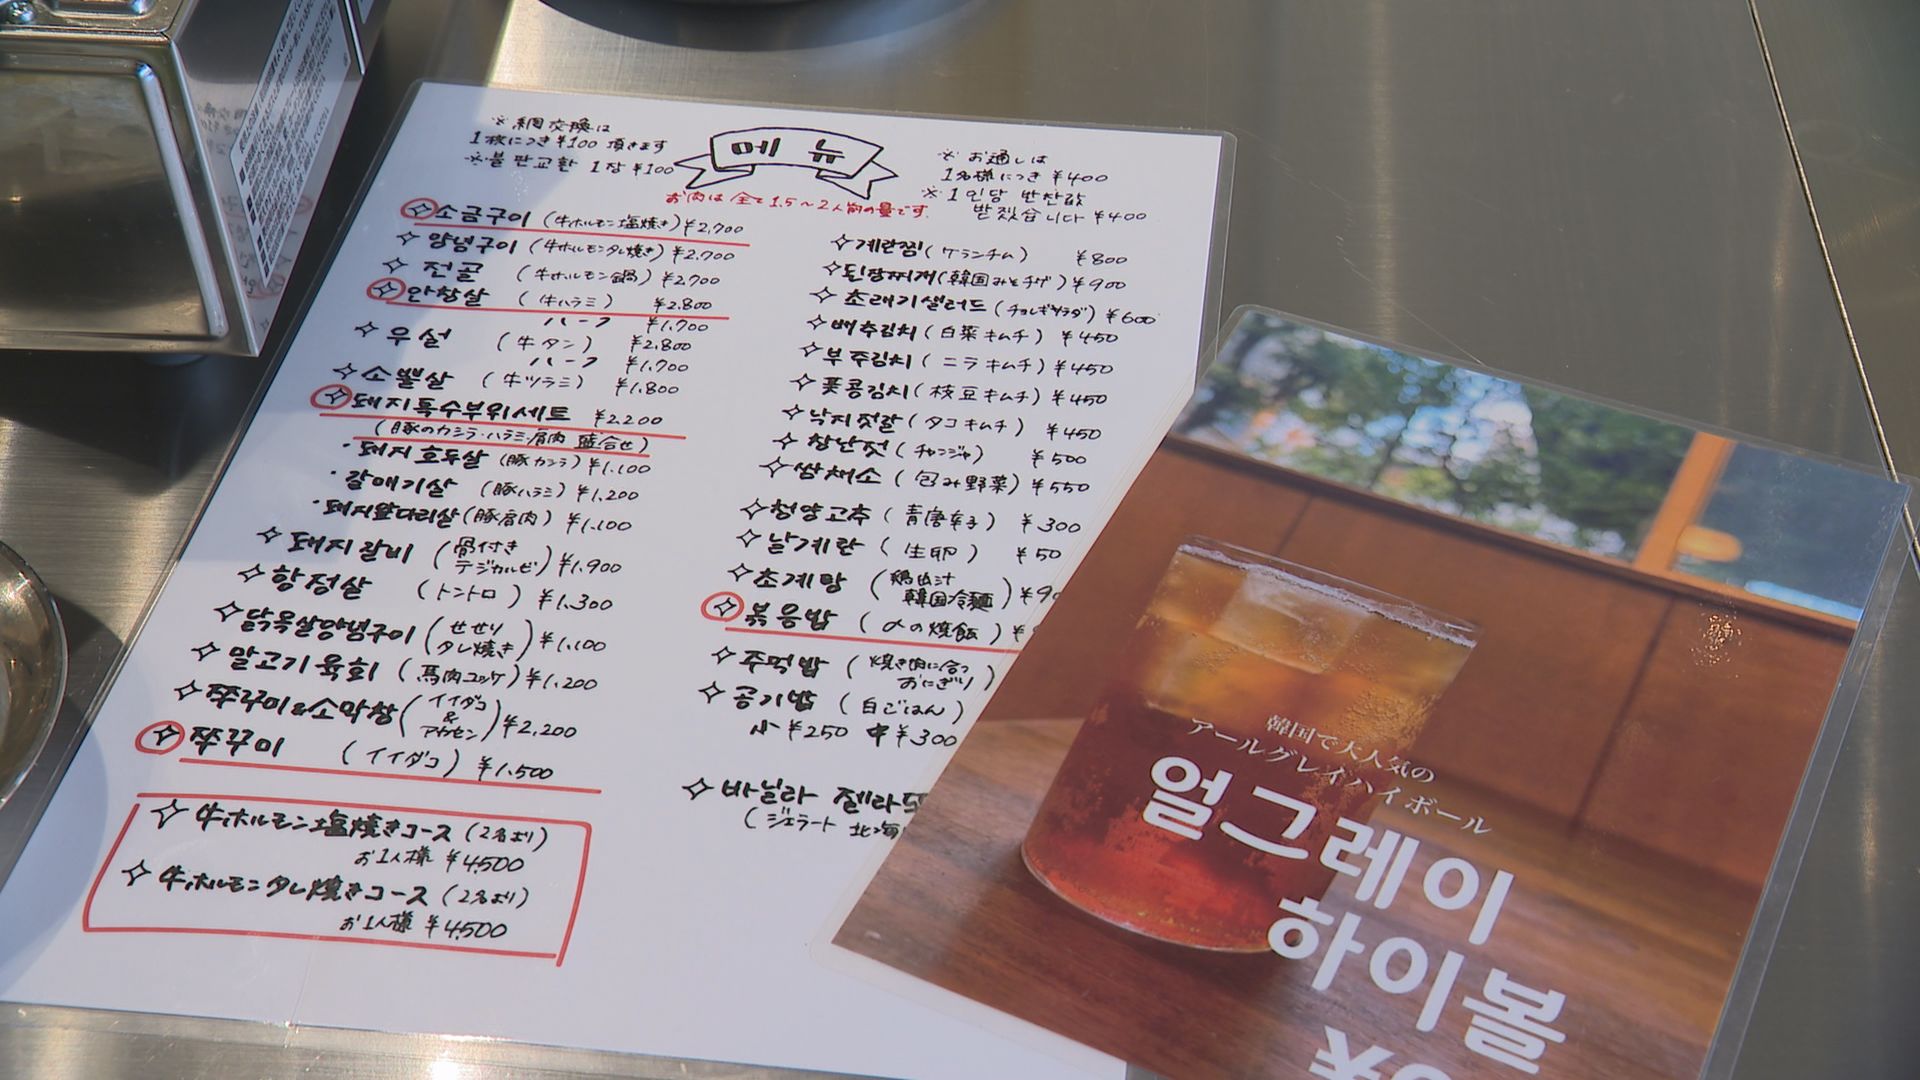 ※ 網交換は
1枚につき¥100 頂きます
※불판교환 1장 ¥100
메뉴
※ お通しは
1名様につき ¥400
※ 1인당 반찬값
받겠습니다 ¥400
お肉は全て1.5〜2人前の量です。
소금구이 (牛ホルモン塩焼き) ¥2,700
양념구이 (牛ホルモンタレ焼き) ¥2,700
전골 (牛ホルモン鍋) ¥2,700
안창살 (牛ハラミ) ¥2,800
ハーフ ¥1,700
우설 (牛タン) ¥2,800
ハーフ ¥1,700
소뽈살 (牛ツラミ) ¥1,800
돼지특수부위세트 ¥2,200
(豚のカシラ・ハラミ・肩肉 盛合せ)
・돼지호두살 (豚カシラ) ¥1,100
・갈매기살 (豚ハラミ) ¥1,200
・돼지앞다리살 (豚肩肉) ¥1,100
돼지갈비 (骨付きテジカルビ) ¥1,900
항정살 (トントロ) ¥1,300
닭목살양념구이 (せせりタレ焼き) ¥1,100
말고기육회 (馬肉ユッケ) ¥1,200
쭈꾸미&소막창 (イイダコ&アカセン) ¥2,200
쭈꾸미 (イイダコ) ¥1,500
牛ホルモン塩焼きコース (2名より)
お1人様 ¥4,500
牛ホルモンタレ焼きコース (2名より)
お1人様 ¥4,500
계란찜 (ケランチム) ¥800
된장찌개 (韓国みそチゲ) ¥900
초래기샐러드 (チョレギサラダ) ¥600
배추김치 (白菜キムチ) ¥450
부추김치 (ニラキムチ) ¥450
풋콩김치 (枝豆キムチ) ¥450
낙지젓갈 (タコキムチ) ¥450
창난젓 (チャンジャ) ¥500
쌈채소 (包み野菜) ¥550
청양고추 (青唐辛子) ¥300
날계란 (生卵) ¥50
초계망 (鶏出汁韓国冷麺)
볶음밥 (〆の焼飯)
주먹밥 (焼き肉に合うおにぎり)
공기밥 (白ごはん)
小¥250 中¥300
바닐라 젤라또
(ジェラート 北海
韓国で大人気の
アールグレイハイボール
얼그레이
하이볼